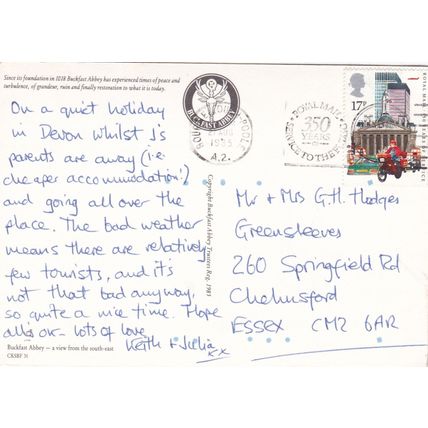 Since its foundation in 1018 Buckfast Abbey has experienced times of peace and
turbulence, of grandeur, ruin and finally restoration to what it is today.
On a quiet holiday
in Devon whilst J's
parents are away (i.e.
cheaper accommodation!)
and going all over the
place. The bad weather
means there are relatively
few tourists, and it's
not that bad anyway,
so quite a nice time. Hope
all's ok - lots of love
Keith + Julia
xx
Buckfast Abbey — a view from the south-east
BUCKFAST ABBEY
Copyright Buckfast Abbey Trustees Reg. 1983
1985
A.2.
ROYAL MAIL
350
YEARS
OF
SERVICE TO THE
17p
ROYAL MAIL
Mr + Mrs G.H. Hodges
Greensleeves
260 Springfield Rd
Chelmsford
ESSEX CM2 6AR